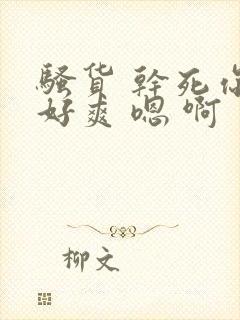 骚货 幹死你
好爽 嗯 啊
柳文